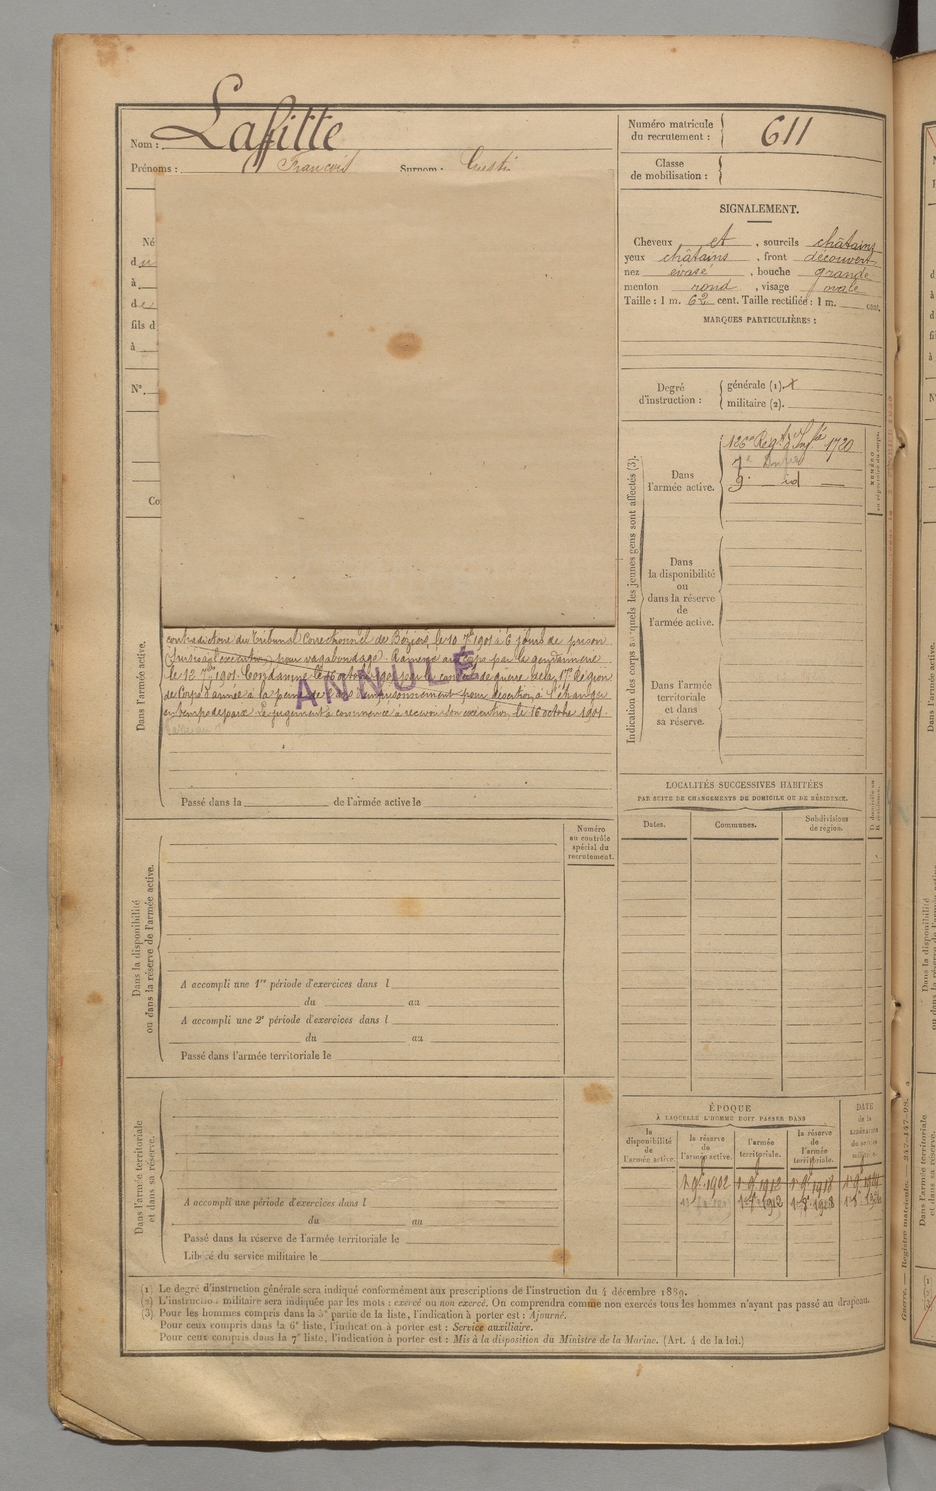 Nom : Lafitte
Prénoms : François Surnom :
Numéro matricule du recrutement : 611
Classe de mobilisation :
SIGNALEMENT.
Cheveux et , sourcils châtains
yeux châtains , front découvert
nez évasé , bouche grande
menton rond , visage ovale
Taille : 1 m. 62 cent. Taille rectifiée : 1 m. cent.
MARQUES PARTICULIÈRES :
Né
du
à
de
fils d
à
N°.
Co
Degré d'instruction :
générale (1).
militaire (2).
Indication des corps auxquels les jeunes gens sont affectés (3).
Dans l'armée active.
126e Regt d'Inf.ie 1720
9. id
Dans la disponibilité ou dans la réserve de l'armée active.
Dans l'armée territoriale et dans sa réserve.
Dans l'armée active.
contradictoire du Tribunal Correctionnel de Béziers, le 10 7bre 1901 à 6 jours de prison
pour vagabondage. Ramené au corps par la gendarmerie
le 12 7bre 1901. Condamné le 16 octobre 1901 par le conseil de guerre de la 17me Région
de Corps d'armée à la peine de 2 ans d'emprisonnement pour désertion à l'étranger
en temps de paix. Le jugement a commencé à recevoir son exécution le 16 octobre 1901.
ANNULÉ
Passé dans la de l'armée active le
LOCALITÉS SUCCESSIVES HABITÉES
PAR SUITE DE CHANGEMENTS DE DOMICILE OU DE RÉSIDENCE.
Dates. Communes. Subdivisions de région.
Numéro au contrôle spécial du recrutement.
Dans la disponibilité ou dans la réserve de l'armée active.
A accompli une 1re période d'exercices dans l
du au
A accompli une 2e période d'exercices dans l
du au
Passé dans l'armée territoriale le
Dans l'armée territoriale et dans sa réserve.
A accompli une période d'exercices dans l
du au
Passé dans la réserve de l'armée territoriale le
Libéré du service militaire le
ÉPOQUE
À LAQUELLE L'HOMME DOIT PASSER DANS
la disponibilité de l'armée active.
la réserve de l'armée active.
l'armée territoriale.
la réserve de l'armée territoriale.
DATE de la LIBÉRATION du service militaire.
(1) Le degré d'instruction générale sera indiqué conformément aux prescriptions de l'instruction du 4 décembre 1889.
(2) L'instruction militaire sera indiquée par les mots : exercé ou non exercé. On comprendra comme non exercés tous les hommes n'ayant pas passé au drapeau.
(3) Pour les hommes compris dans la 5e partie de la liste, l'indication à porter est : Ajourné.
Pour ceux compris dans la 6e liste, l'indication à porter est : Service auxiliaire.
Pour ceux compris dans la 7e liste, l'indication à porter est : Mis à la disposition du Ministre de la Marine. (Art. 4 de la loi.)